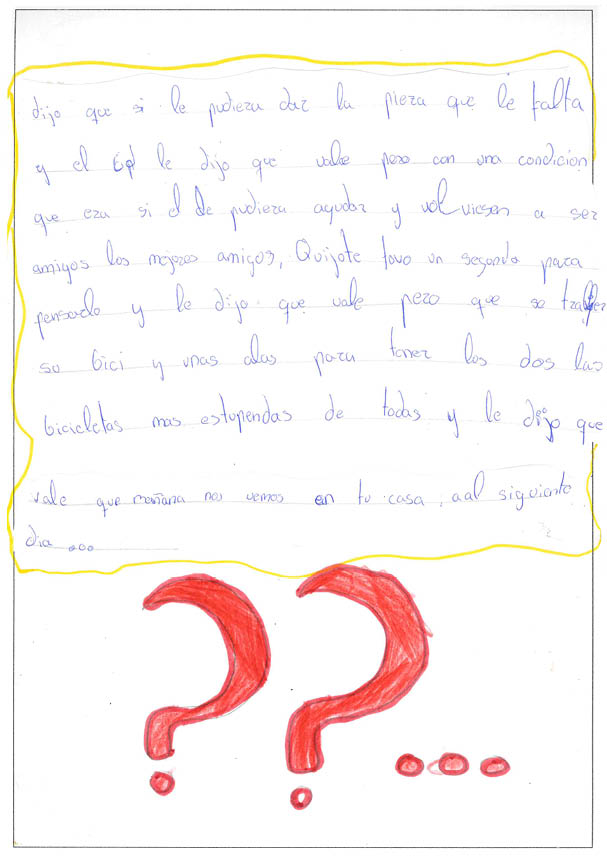 dijo que si le pudiera dar la pieza que le falta
y el le dijo que vale pero con una condición
que era si el le pudiera ayudar y volviesen a ser
amigos los mejores amigos, Quijote tuvo un segundo para
pensarlo y le dijo que vale pero que se traiga
su bici y unas alas para tener los dos las
bicicletas mas estupendas de todas y le dijo que
vale que mañana nos vemos en tu casa, aal siguiente
dia ...
?? ...